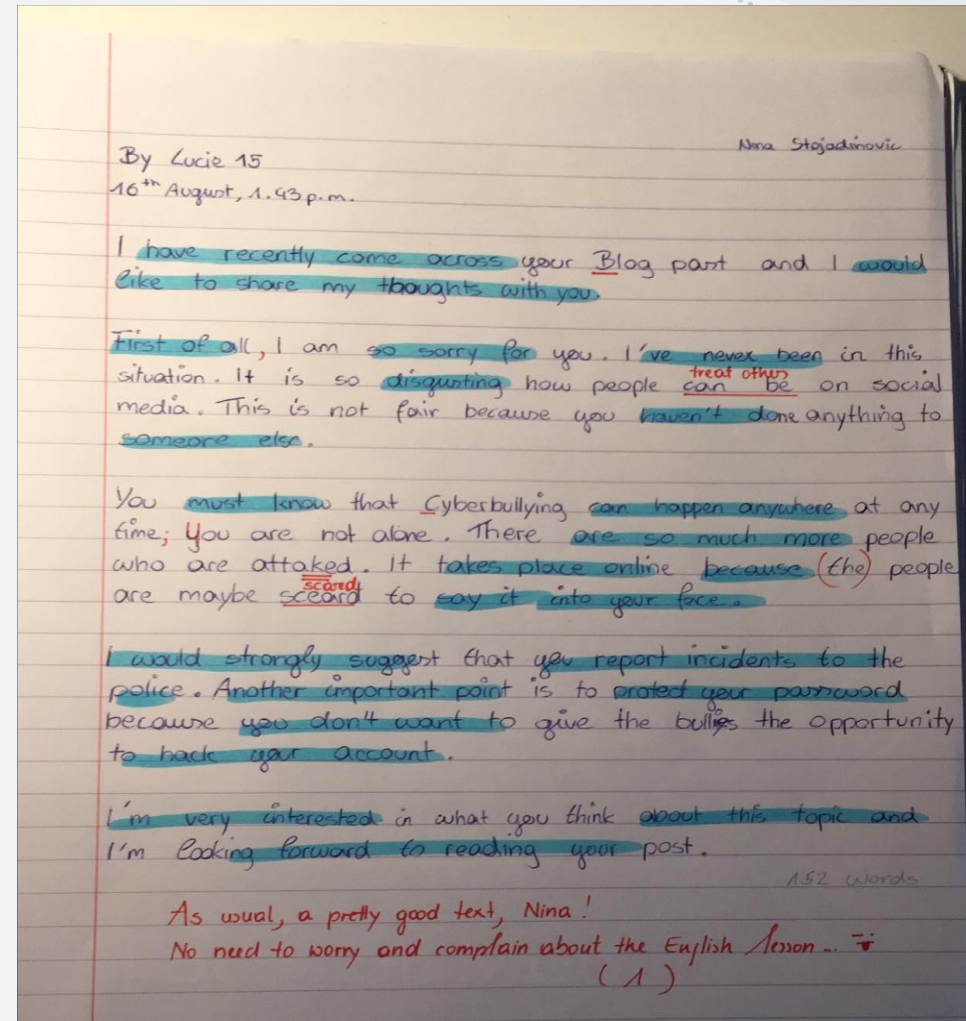 Nina Stojadinovic
By Lucie 15
16th August, 1.43 p.m.
I have recently come across your Blog past and I would
like to share my thoughts with you.
First of all, I am so sorry for you. I've never been in this
treat other
situation. It is so disgusting how people can be on social
media. This is not fair because you haven't done anything to
someone else.
You must know that Cyberbullying can happen anywhere at any
time; you are not alone. There are so much more people
who are attaked. It takes place online because (the) people
scared
are maybe sceard to say it into your face.
I would strongly suggest that you report incidents to the
police. Another important point is to protect your password
because you don't want to give the bullies the opportunity
to hack your account.
I'm very interested in what you think about this topic and
I'm looking forward to reading your post.
152 words
As usual, a pretty good text, Nina!
No need to worry and complain about the English lesson...
(1)